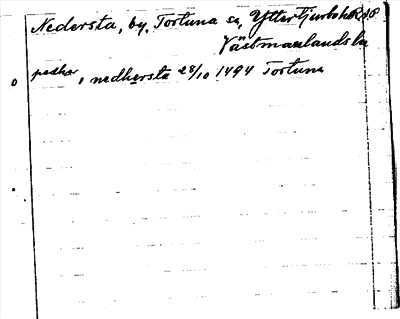 Nedersta, by, Tortuna sn, Yttertjurbo hd
Västmanlands län
nedhersta 28/10 1494 Tortuna